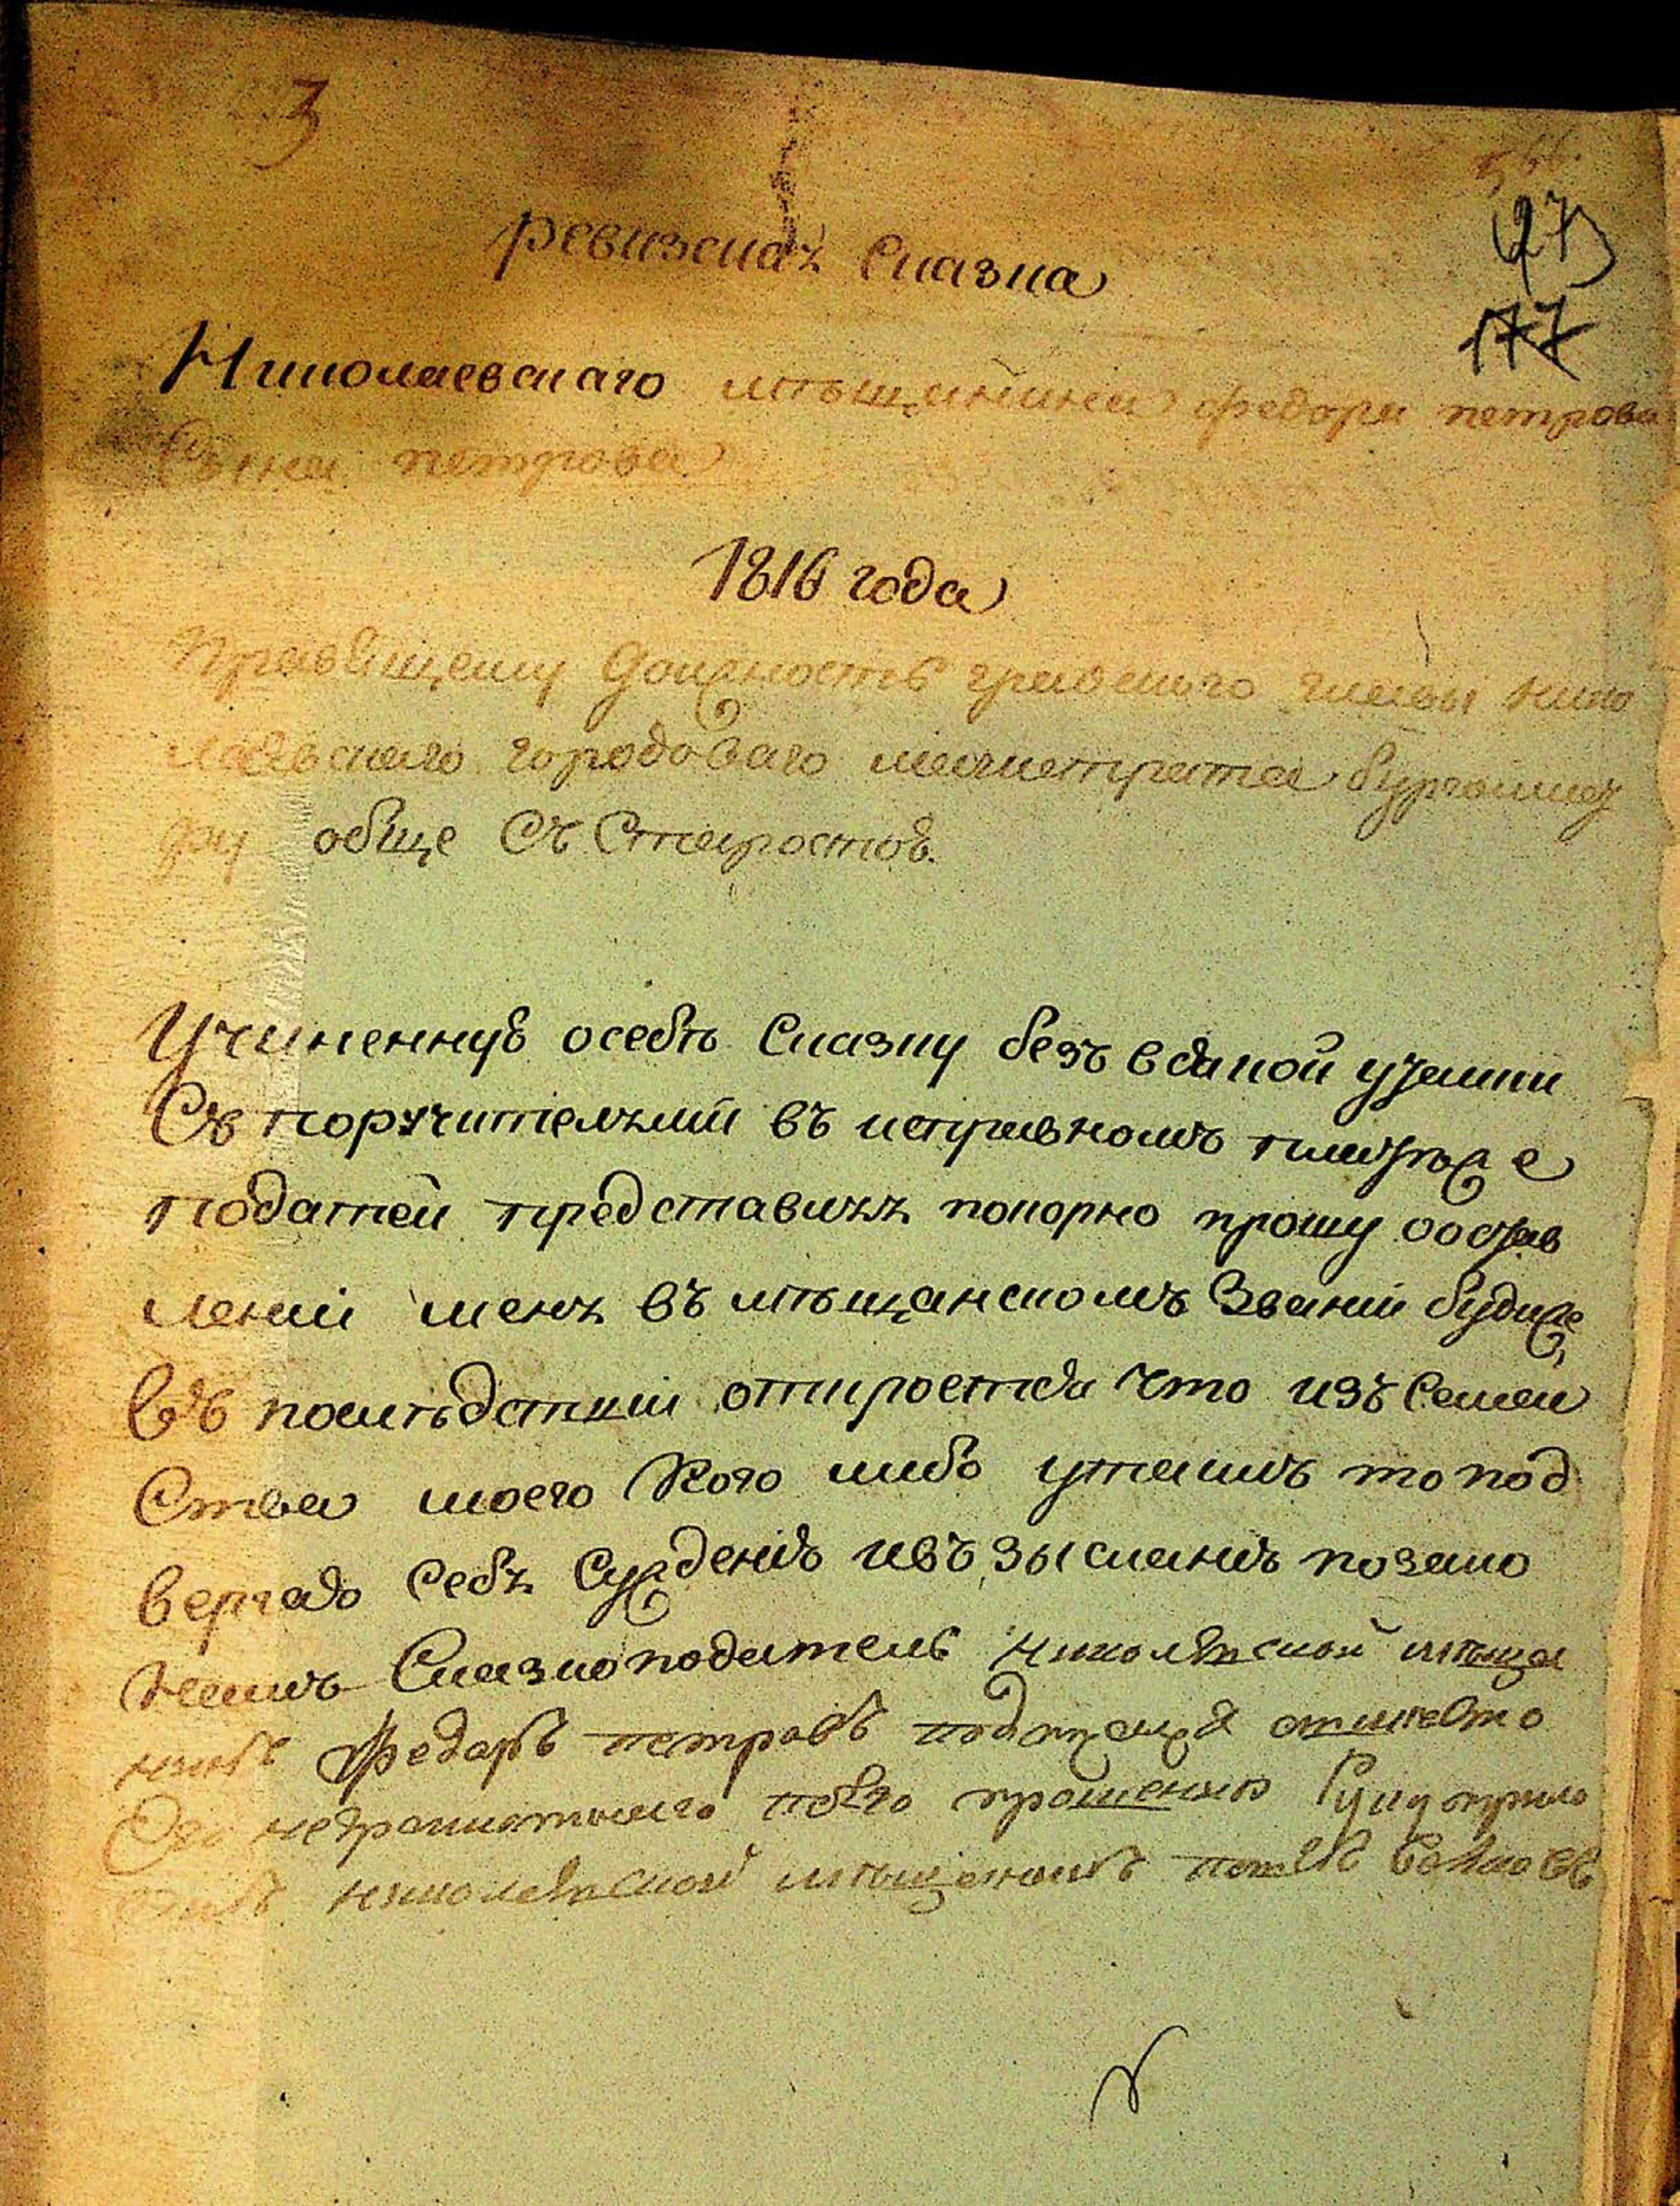 3
273
177
ревизская Сказка
Николаевскаго мѣщанина федора петрова
Сына петрова
1816 года
Правящему Должность градскаго главы Нико
лаевскаго городоваго магистрата бургомис
ру обще Съ Старостою.
Учиненную осебѣ Сказку безъ всякой утайки
Съ поручителями въ исправномъ платеже
податей представляя покорно прошу обостав
лении меня въ мѣщанскомъ Звании будиже
въ послѣдствии откроется что изъ Семей
Ства моего Кого либо утаилъ то под
вергаю Себя Суждению ивъзысканию позако
намъ Сказкоподатель николаевской мѣща
нинъ федоръ петровъ
неграмотнаго поего прошению Руку прило
жилъ николаевской мѣщанинъ